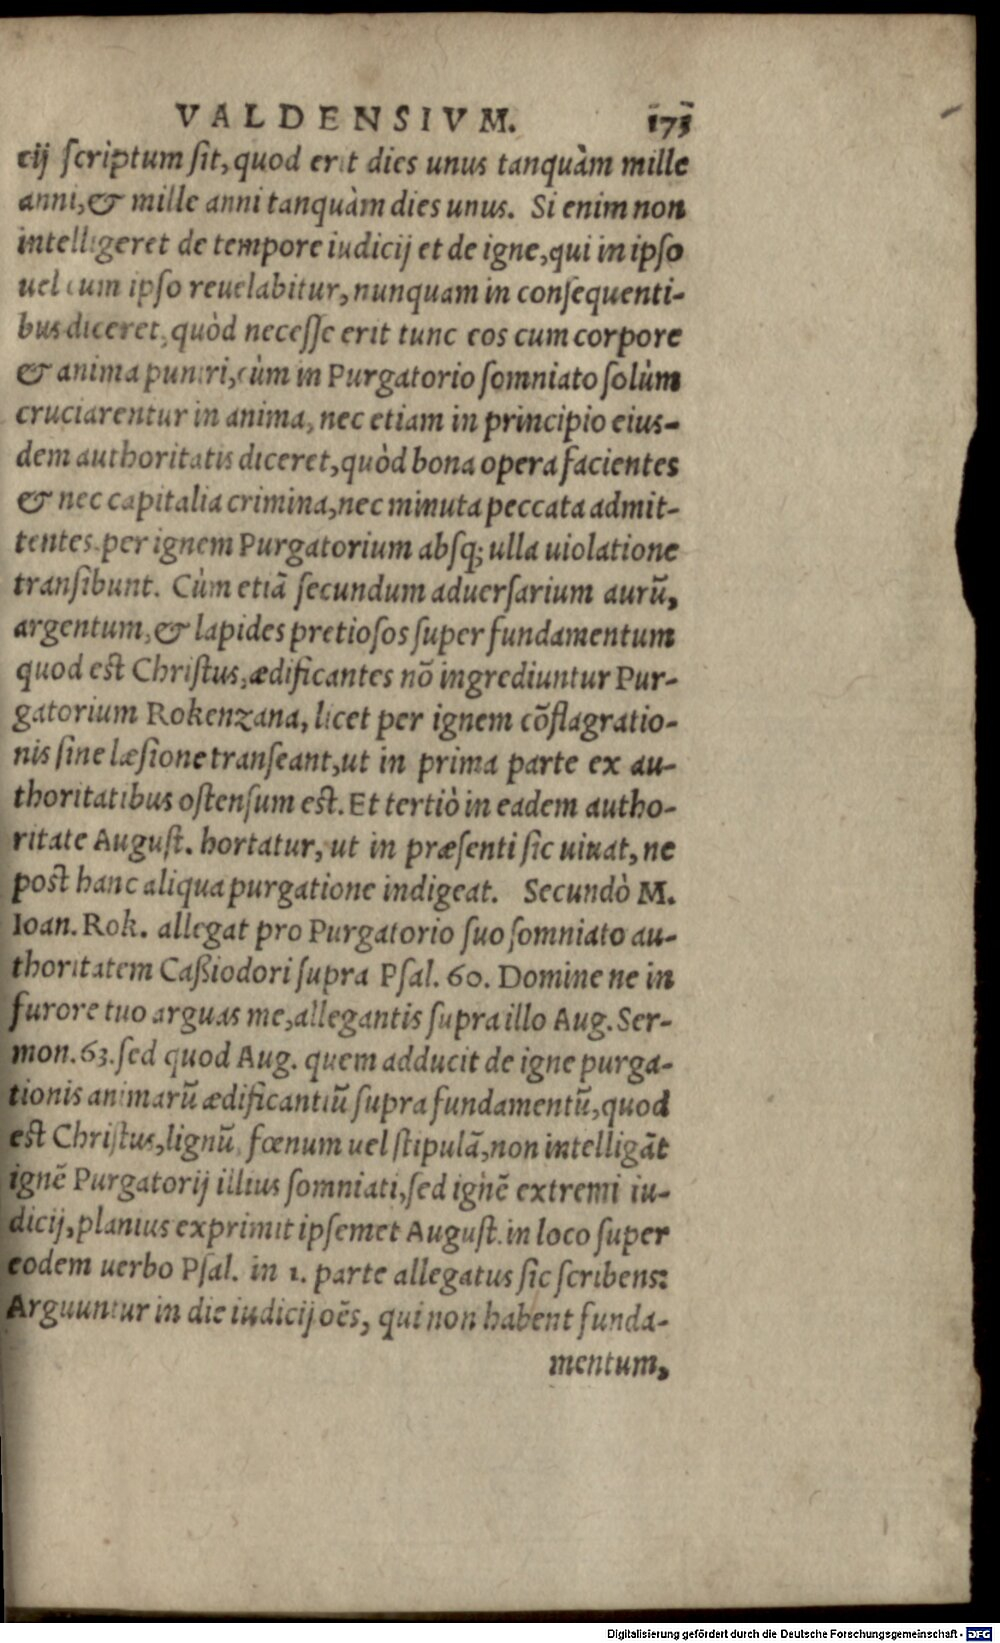 VALDENSIVM. 173
cij ſcriptum ſit, quod erit dies unus tanquàm mille
anni, & mille anni tanquàm dies unus. Si enim non
intelligeret de tempore iudicij et de igne, qui in ipſo
uel cum ipſo reuelabitur, nunquam in conſequenti-
bus diceret, quòd neceſſe erit tunc eos cum corpore
& anima puniri, cùm in Purgatorio ſomniato ſolùm
cruciarentur in anima, nec etiam in principio eius-
dem authoritatis diceret, quòd bona opera facientes
& nec capitalia crimina, nec minuta peccata admit-
tentes per ignem Purgatorium abſq; ulla uiolatione
tranſibunt. Cùm etiã ſecundum aduerſarium aurũ,
argentum, & lapides pretioſos ſuper fundamentum
quod eſt Chriſtus, ædificantes nõ ingrediuntur Pur-
gatorium Rokenzana, licet per ignem cõflagratio-
nis ſine læſione tranſeant, ut in prima parte ex au-
thoritatibus oſtenſum eſt. Et tertiò in eadem autho-
ritate Auguſt. hortatur, ut in præſenti ſic uiuat, ne
poſt hanc aliqua purgatione indigeat. Secundò M.
Ioan. Rok. allegat pro Purgatorio ſuo ſomniato au-
thoritatem Caßiodori ſupra Pſal. 60. Domine ne in
furore tuo arguas me, allegantis ſupra illo Aug. Ser-
mon. 63. ſed quod Aug. quem adducit de igne purga-
tionis animarũ ædificantiũ ſupra fundamentũ, quod
eſt Chriſtus, lignũ, fœnum uel ſtipulã, non intelligãt
ignẽ Purgatorij illius ſomniati, ſed ignẽ extremi iu-
dicij, planius exprimit ipſemet Auguſt. in loco ſuper
eodem uerbo Pſal. in 1. parte allegatus ſic ſcribens:
Arguuntur in die iudicij oẽs, qui non habent funda-
mentum,
Digitalisierung gefördert durch die Deutsche Forschungsgemeinschaft - DFG